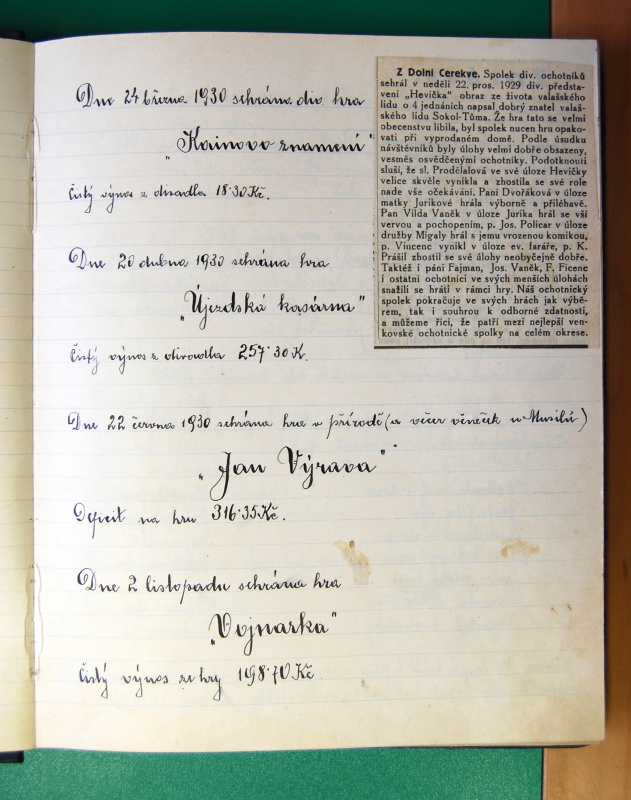 Dne 24 března 1930 sehrána div. hra
"Kainovo znamení"
Čistý výnos z divadla 18·30 Kč.
Dne 20 dubna 1930 sehrána hra
"Újezdská kasárna"
Čistý výnos z divadla 257·30 K.
Dne 22 června 1930 sehrána hra v přírodě (a večer věneček u Musilů)
"Jan Výrava"
Deficit na hru 316·35 Kč.
Dne 2 listopadu sehrána hra
"Vojnarka"
Čistý výnos ze hry 198·70 Kč
Z Dolní Cerekve. Spolek div. ochotníků
sehrál v neděli 22. pros. 1929 div. představ-
vení „Hevička" obraz ze života valašského
lidu o 4 jednáních napsal dobrý znatel valaš-
ského lidu Sokol-Tůma. Že hra tato se velmi
obecenstvu líbila, byl spolek nucen hru opako-
vati při vyprodaném domě. Podle úsudku
návštěvníků byly úlohy velmi dobře obsazeny,
vesměs osvědčenými ochotníky. Podotknouti
sluší, že sl. Prodělalová ve své úloze Hevičky
velice skvěle vynikla a zhostila se své role
nade vše očekávání. Paní Dvořáková v úloze
matky Jurikové hrála výborně a přiléhavě.
Pan Vilda Vaněk v úloze Jurika hrál se vší
vervou a pochopením, p. Jos. Policar v úloze
družby Migaly hrál s jemu vrozenou komikou,
p. Vincenc vynikl v úloze ev. faráře, p. K.
Prášil zhostil se své úlohy neobyčejně dobře.
Taktéž i páni Fajman, Jos. Vaněk, F. Ficenc
i ostatní ochotníci ve svých menších úlohách
snažili se hráti v rámci hry. Náš ochotnický
spolek pokračuje ve svých hrách jak výbě-
rem, tak i souhrou k odborné zdatnosti,
a můžeme říci, že patří mezi nejlepší ven-
kovské ochotnické spolky na celém okrese.